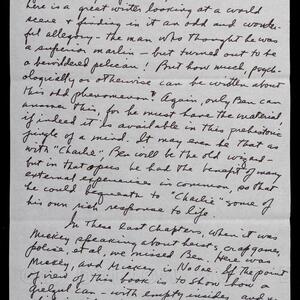 here is a great writer looking at a world
scene & finding in it an odd and wonder-
ful allegory - the man who thought he was
a superior marlin - but turned out to be
a bewildered pelican! But how much, psych-
ologically or otherwise can be written about
this odd phenomenon? Again, only Ben can
answer this, for he must have the material,
if indeed it is available in this prehistoric
jungle of a mind. It may even be that as
with "Charlie" Ben will be the old wizard -
but in that opus he had the benefit of many
external experiences in common, so that
he could bequeath to "Charlie" some of
his own rich response to life.
In these last chapters, when it was
Mickey speaking about heists, crap games,
police et al, we missed Ben. Here was
Mickey, and Mickey is No One. If the point
of view of this book is to show how a
can - with empty insides, and